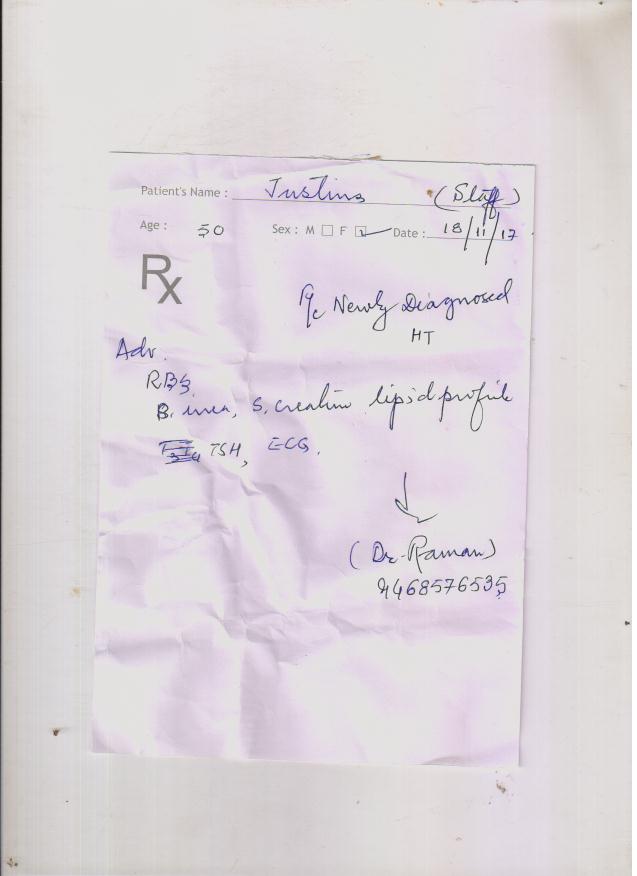 Patient's Name : Justina (Staff)
Age : 50 Sex : M F Date : 18/11/17
Rx
Newly Diagnosed
HT
Adv.
RBS
B. urea, S. creatinin lipid profile
TSH, ECG.
(Dr. Raman)
9468576535